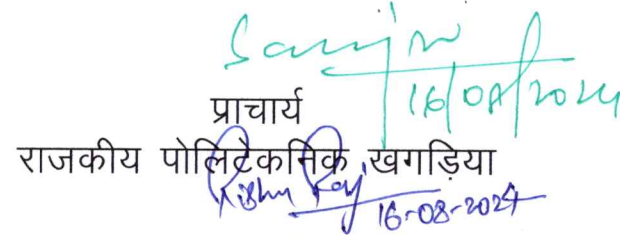 Sanjiv
16/08/2024
प्राचार्य
राजकीय पोलिटेकनिक, खगड़िया
Rishu Raj
16-08-2024